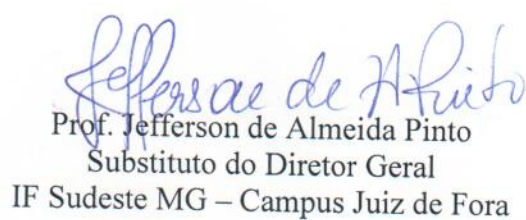 Jefferson de A Pinto
Prof. Jefferson de Almeida Pinto
Substituto do Diretor Geral
IF Sudeste MG – Campus Juiz de Fora